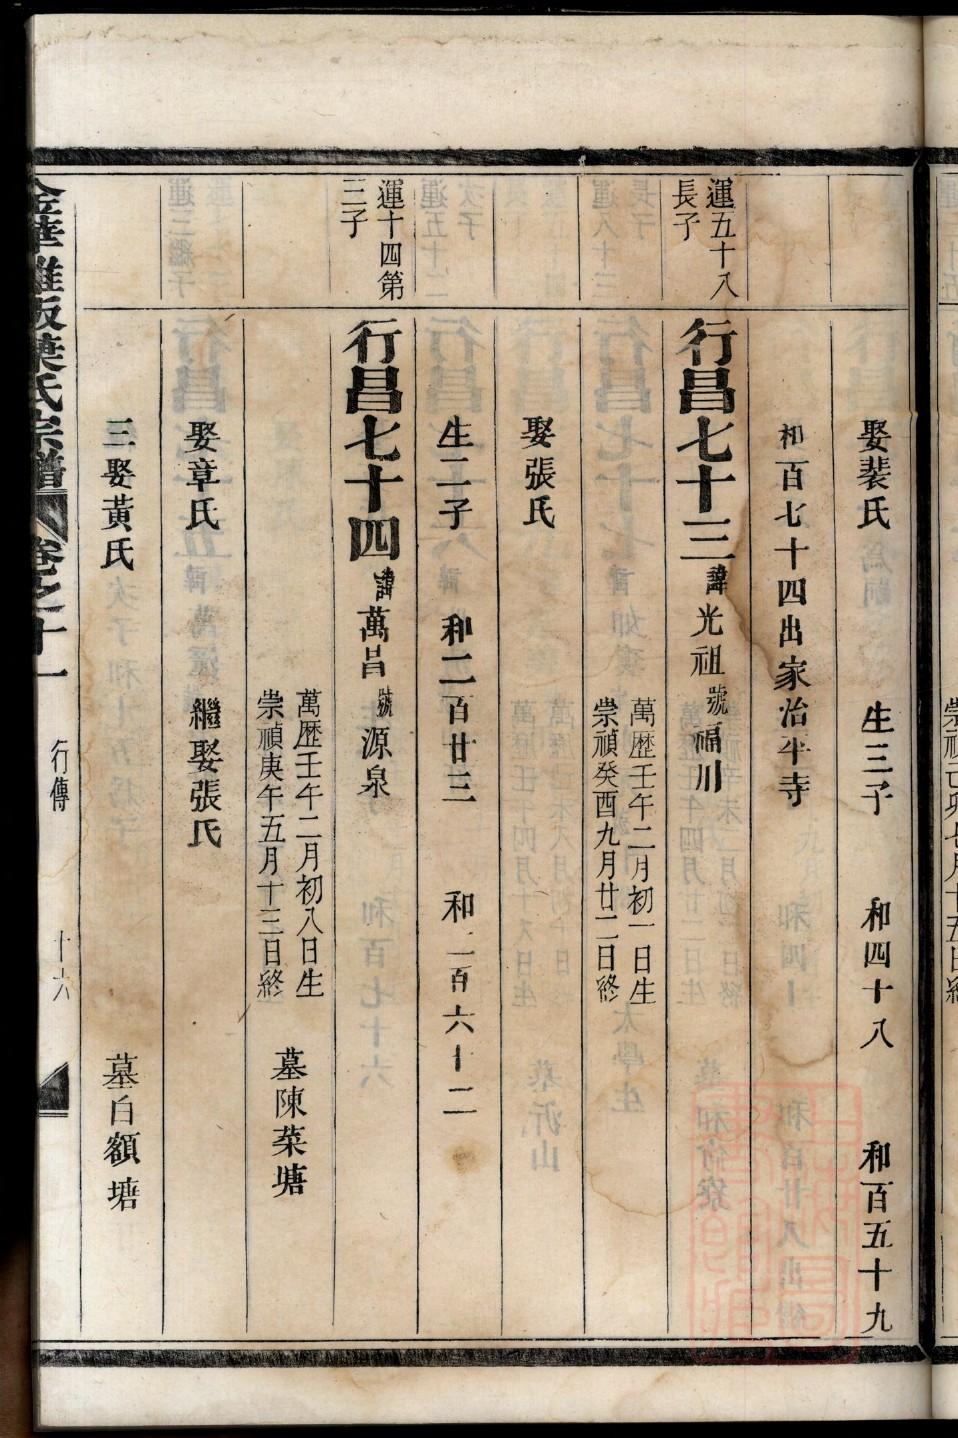 娶裴氏 生三子 和四十八 和百五十九
和百七十四出家治平寺
運五十八
長子
行昌七十三諱光祖號福川
萬歷壬午二月初一日生
崇禎癸酉九月廿二日終
娶張氏
生二子 和二百廿三 和二百六十二
運十四第
三子
行昌七十四諱萬昌號源泉
萬歷壬午二月初八日生
崇禎庚午五月十三日終
墓陳菜塘
娶章氏 繼娶張氏
三娶黃氏 墓白額塘
金華 氏宗譜 卷之十一 行傳 十六